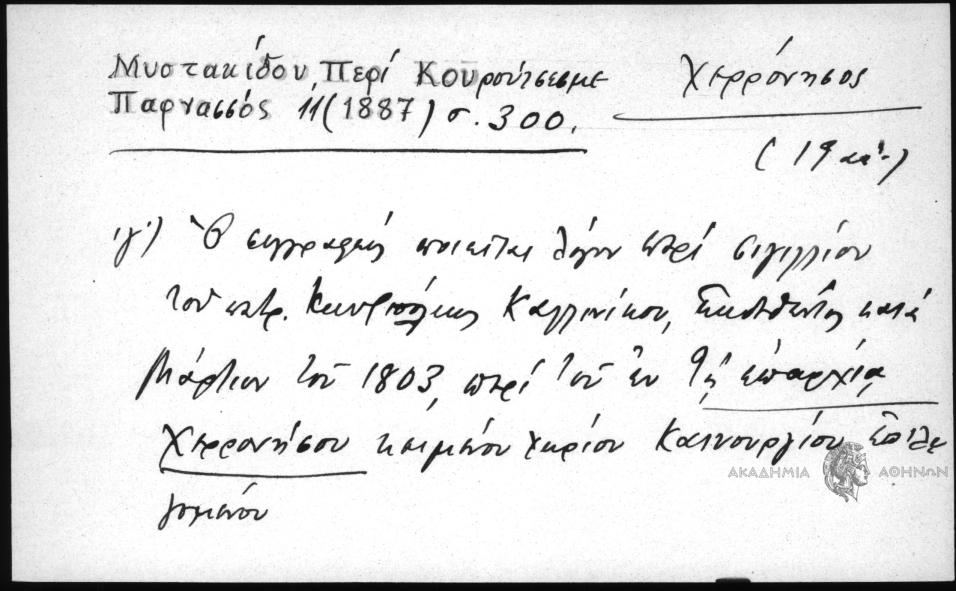 Μυστακίδου Περί Κουρούτσεσμε
Παρνασσός 11 (1887) σ. 300.
Χερρόνησος
(19 αἰ.)
ιγ') Ὁ συγγραφεύς ποιεῖται λόγον περί σιγιλλίου
τοῦ πατρ. Κων/πόλεως Καλλινίκου, ἐκδοθέντος κατά
Μάρτιον τοῦ 1803, περί τοῦ ἐν τῇ ἐπαρχίᾳ
Χερρονήσου κειμένου χωρίου Καινουργίου ἐπιλε
γομένου
ΑΚΑΔΗΜΙΑ ΑΘΗΝΩΝ